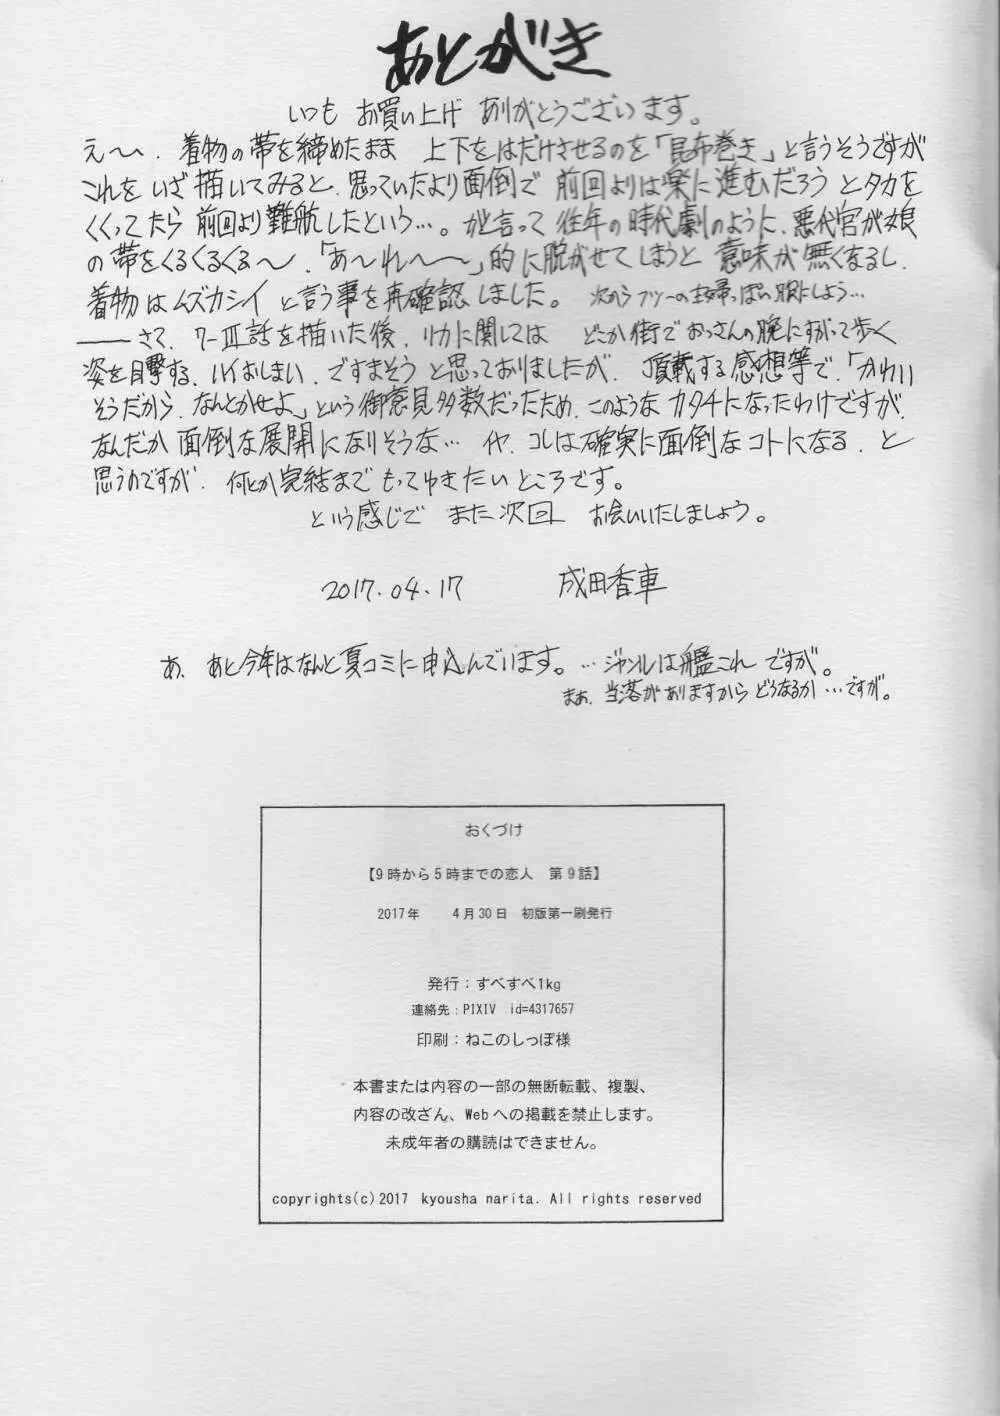 あとがき
いつも お買い上げ ありがとうございます。
え〜、着物の帯を締めたまま 上下をはだけさせるのを「昆布巻き」と言うそうですが
これを いざ 描いてみると、思っていたより面倒で 前回よりは楽に進むだろう とタカを
くくってたら 前回より難航したという…。が言って 往年の時代劇のように、悪代官が娘
の帯をくるくるくる〜、「あ〜れ〜〜」的に脱がせてしまうと 意味が無くなるし、
着物はムズカシイ と言う事を再確認しました。 次からフツーの主婦っぽい服にしよう…
――さて、7-Ⅲ話を描いた後、リカに関しては どこか街でおっさんの腕にすがって歩く
姿を目撃する、ハイおしまい、ですまそう と思っておりましたが、頂載する感想等で、「かわいい
そうだから、なんとかせよ」という御意見多数だったため、このようなカタチになったわけですが、
なんだか面倒な展開になりそうな… イヤ、コレは確実に面倒なコトになる、と
思うのですが、何とか完結まで もってゆきたいところです。
という感じで また次回 お会いいたしましょう。
2017.04.17 成田香車
あ、あと今年はなんと夏コミに申込んでいます。…ジャンルは艦これ ですが。
まぁ、当落がありますから どうなるか…ですが。
おくづけ
【9時から5時までの恋人 第9話】
2017年 4月30日 初版第一刷発行
発行：すべすべ1kg
連絡先：PIXIV id=4317657
印刷：ねこのしっぽ様
本書または内容の一部の無断転載、複製、
内容の改ざん、Webへの掲載を禁止します。
未成年者の購読はできません。
copyrights(c)2017 kyousha narita. All rights reserved